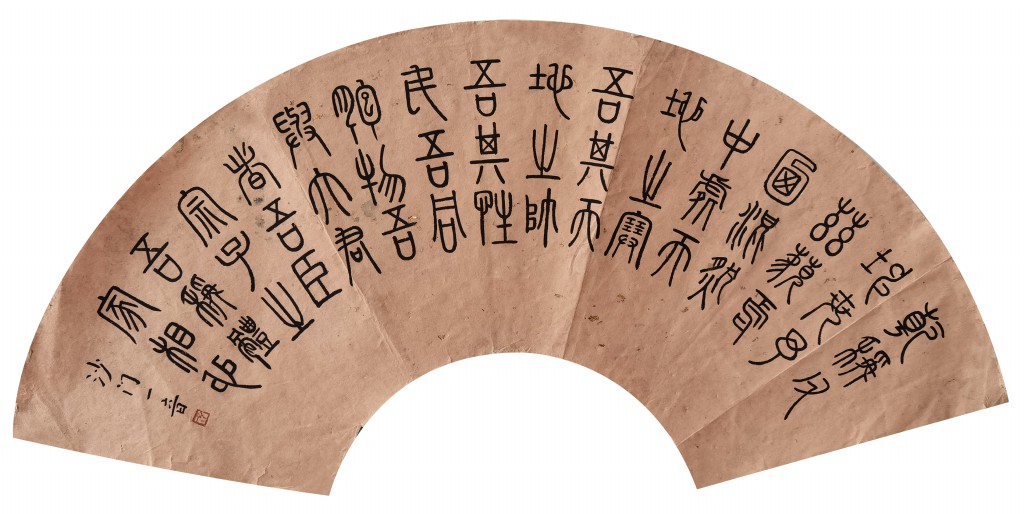 乾稱父
坤稱母
茲藐焉
混然
中處天
地之塞
吾其天
地之帥
吾其性
民吾同
胞物吾
與大君
者吾臣
宗子之
吾稱體
家相也
沙门一音